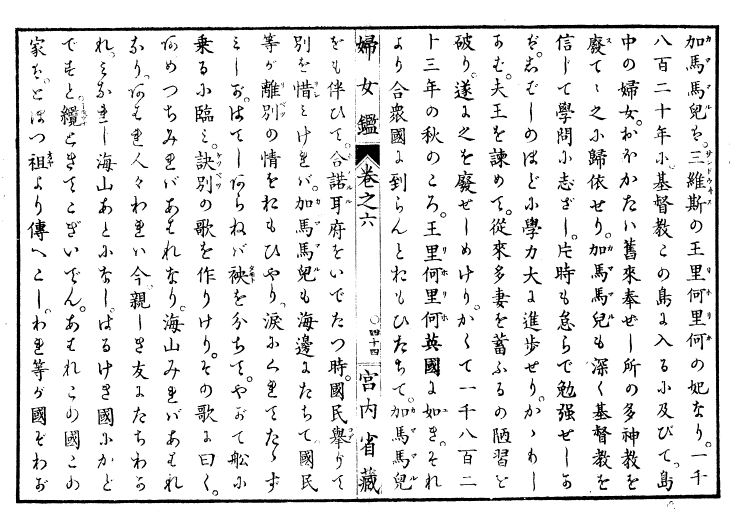 加馬馬兒は。三維斯の王里何里何の妃なり。一千
八百二十年に。基督教この島に入るに及びて。島
中の婦女。おほかたい舊來奉ぜし所の多神教を
廢てゝ之に歸依せり。加馬馬兒も深く基督教を
信じて學問に志ざし。片時も怠らで勉强せしか
ば。しばしのほどに學力大に進歩せり。かゝれし
あひ。夫王を諫めて。從來多妻を蓄ふるの陋習を
破り。遂に之を廢せしめけり。かくて一千八百二
十三年の秋のころ。王里何里何英國に如き。それ
より合衆國に到らんとおもひたちて。加馬馬兒
婦女鑑 卷之六 ○四十四 宮内省藏
をも伴ひて。合諾耳府をいでたつ時。國民擧りて
別を惜みけれバ。加馬馬兒も海邊にたちて。國民
等が離別の情をおもひやり。涙にくれてたゝず
みしが。はてしあらねバ袂を分ちて。やがて船に
乘るに臨み。訣別の歌を作りけり。その歌に曰く。
あめつちみればあはれなり。海山みればあはれ
なり。あはれ人々われハ今。親しき友にたちわか
れ。みなれし海山あとになし。はるけき國にかど
でもと。纜ときてこぎいでん。あはれこの國この
家を。とほつ祖より傳へこし。われ等が國ぞわが